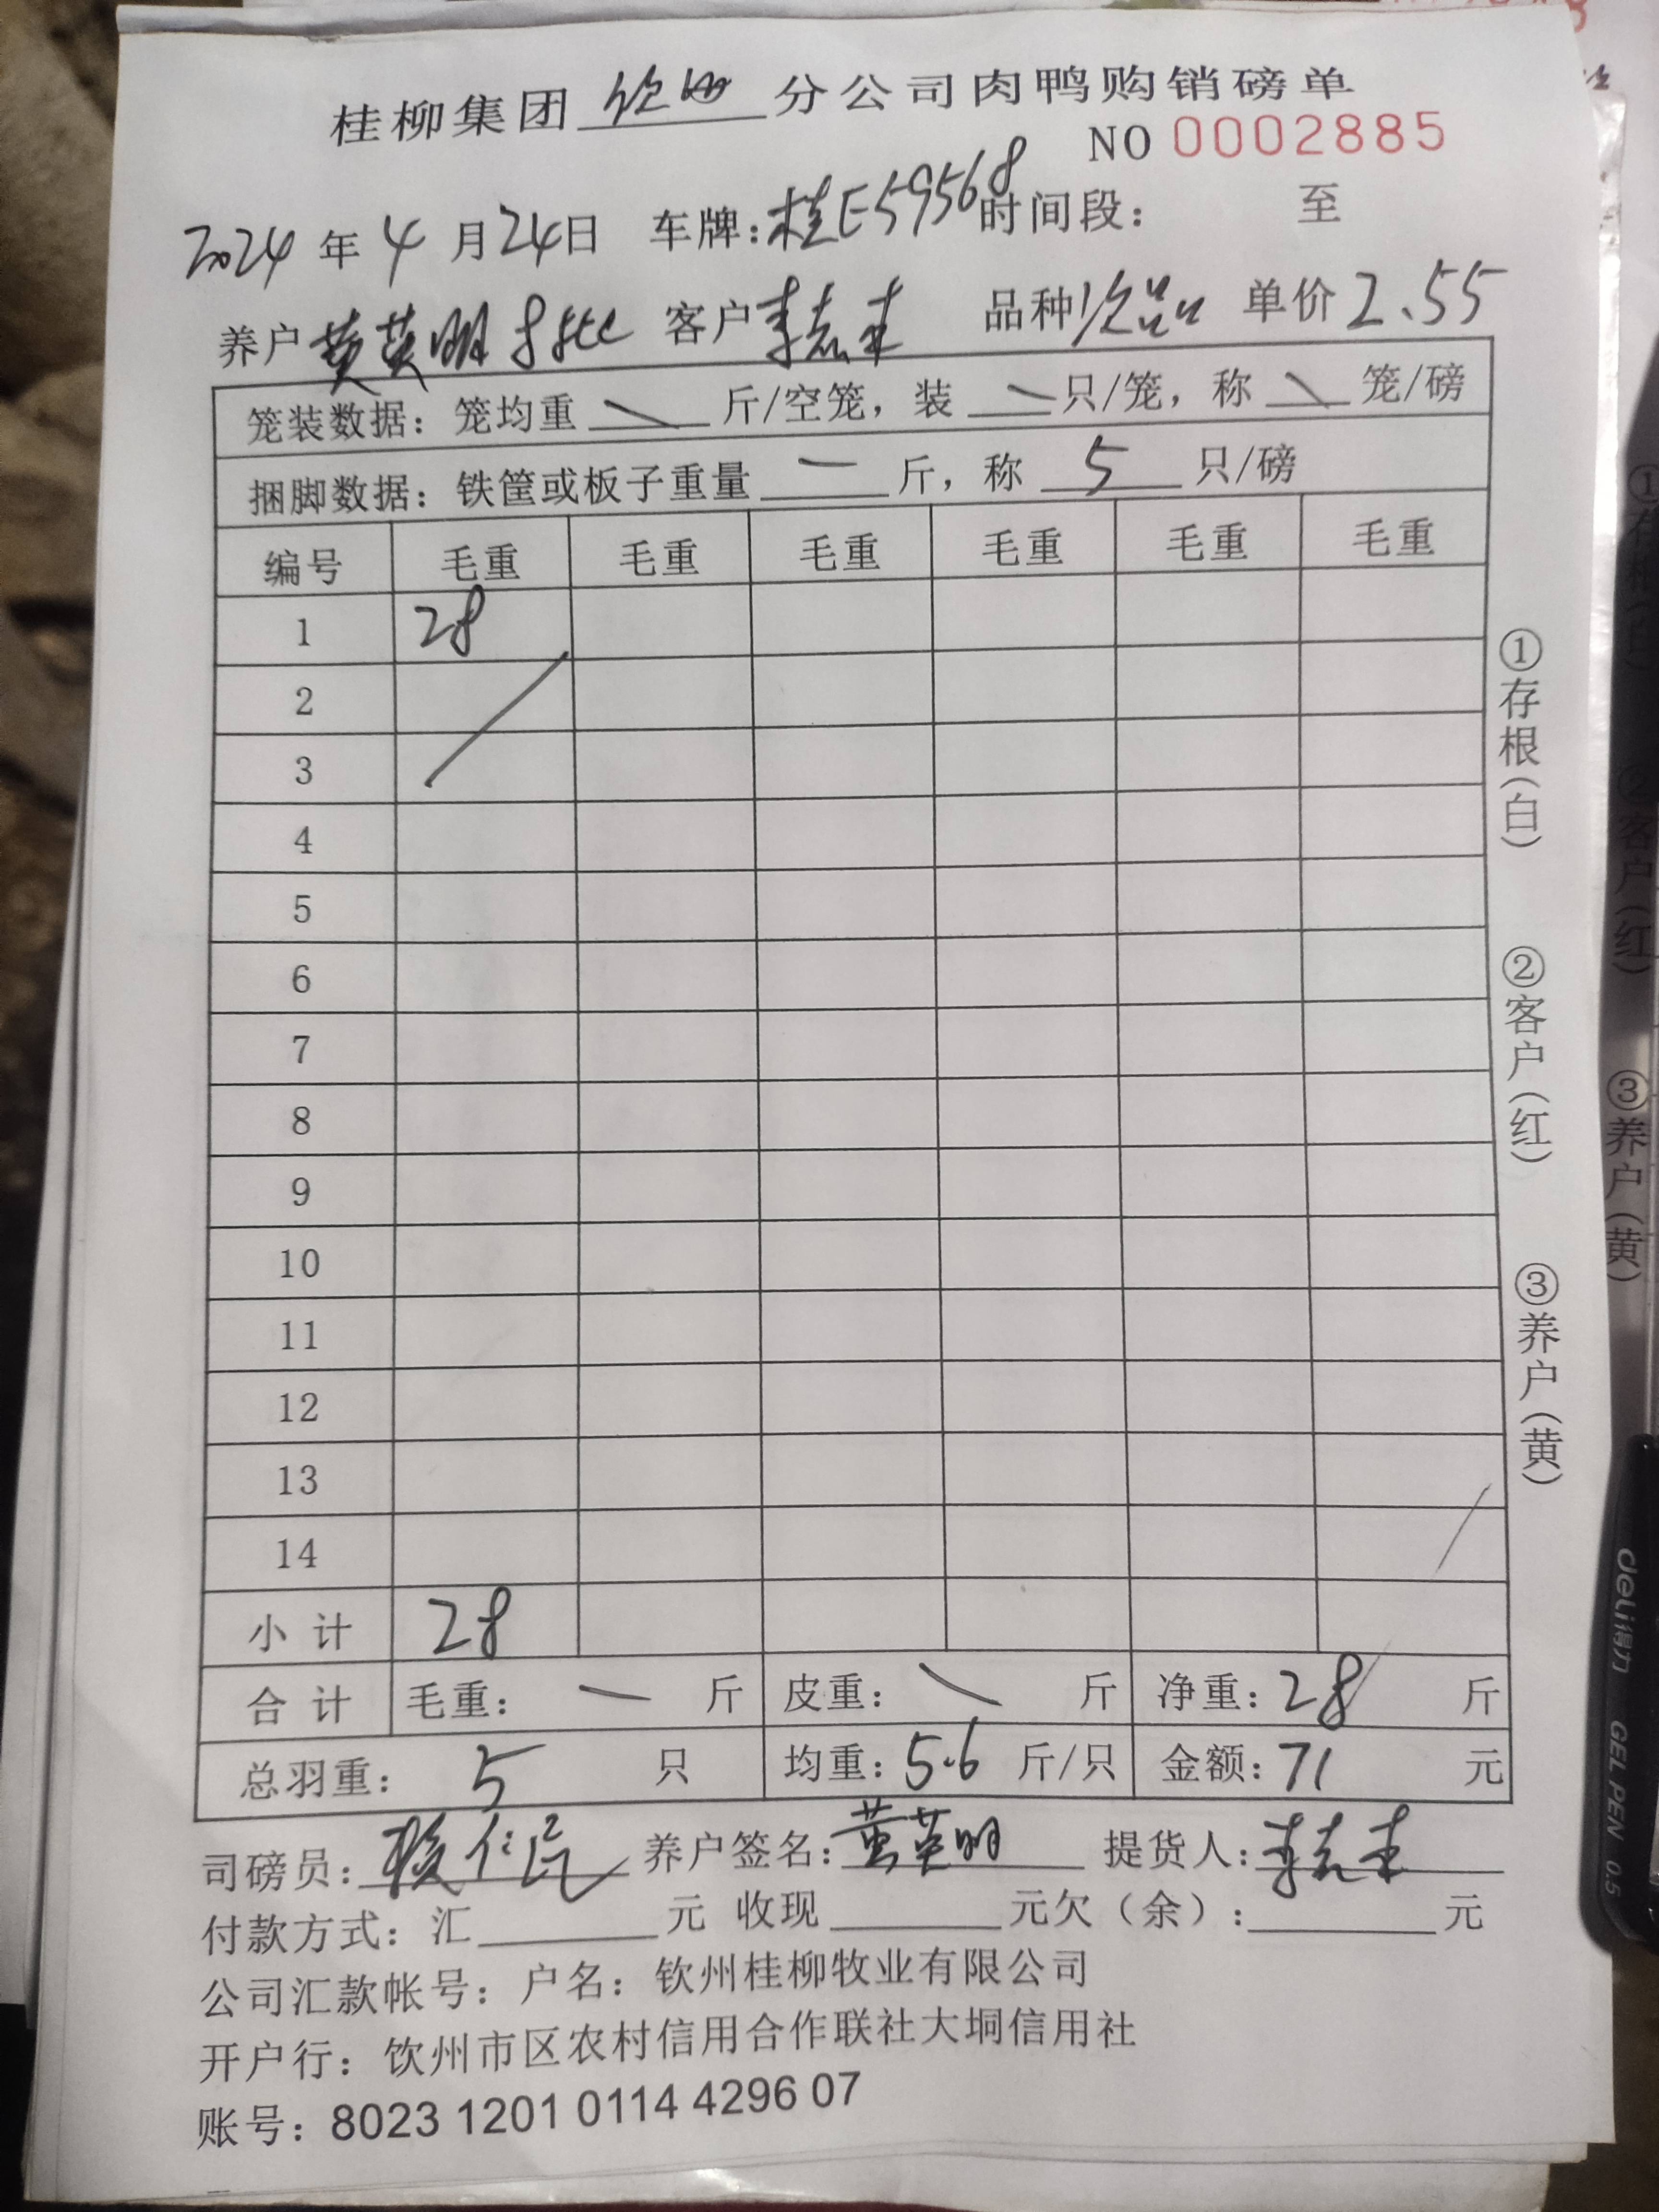 桂柳集团 钦州 分公司肉鸭购销磅单
NO 0002885
2024 年 4 月 24日 车牌:桂E59568 时间段: 至
养户 黄英明 客户 李志丰 品种 次品 单价 2.55
笼装数据: 笼均重 \ 斤/空笼, 装 \ 只/笼, 称 \ 笼/磅
捆脚数据: 铁筐或板子重量 — 斤, 称 5 只/磅
编号 毛重 毛重 毛重 毛重 毛重 毛重
1 28
2
3
4
5
6
7
8
9
10
11
12
13
14
小计 28
合计 毛重: — 斤 皮重: \ 斤 净重: 28 斤
总羽重: 5 只 均重: 5.6 斤/只 金额: 71 元
司磅员: 养户签名: 黄英明 提货人:
付款方式: 汇 元 收现 元欠(余): 元
公司汇款帐号: 户名: 钦州桂柳牧业有限公司
开户行: 钦州市区农村信用合作联社大垌信用社
账号: 8023 1201 0114 4296 07
①存根(白)
②客户(红)
③养户(黄)
②客户(红)
③养户(黄)
deli得力 GEL PEN 0.5